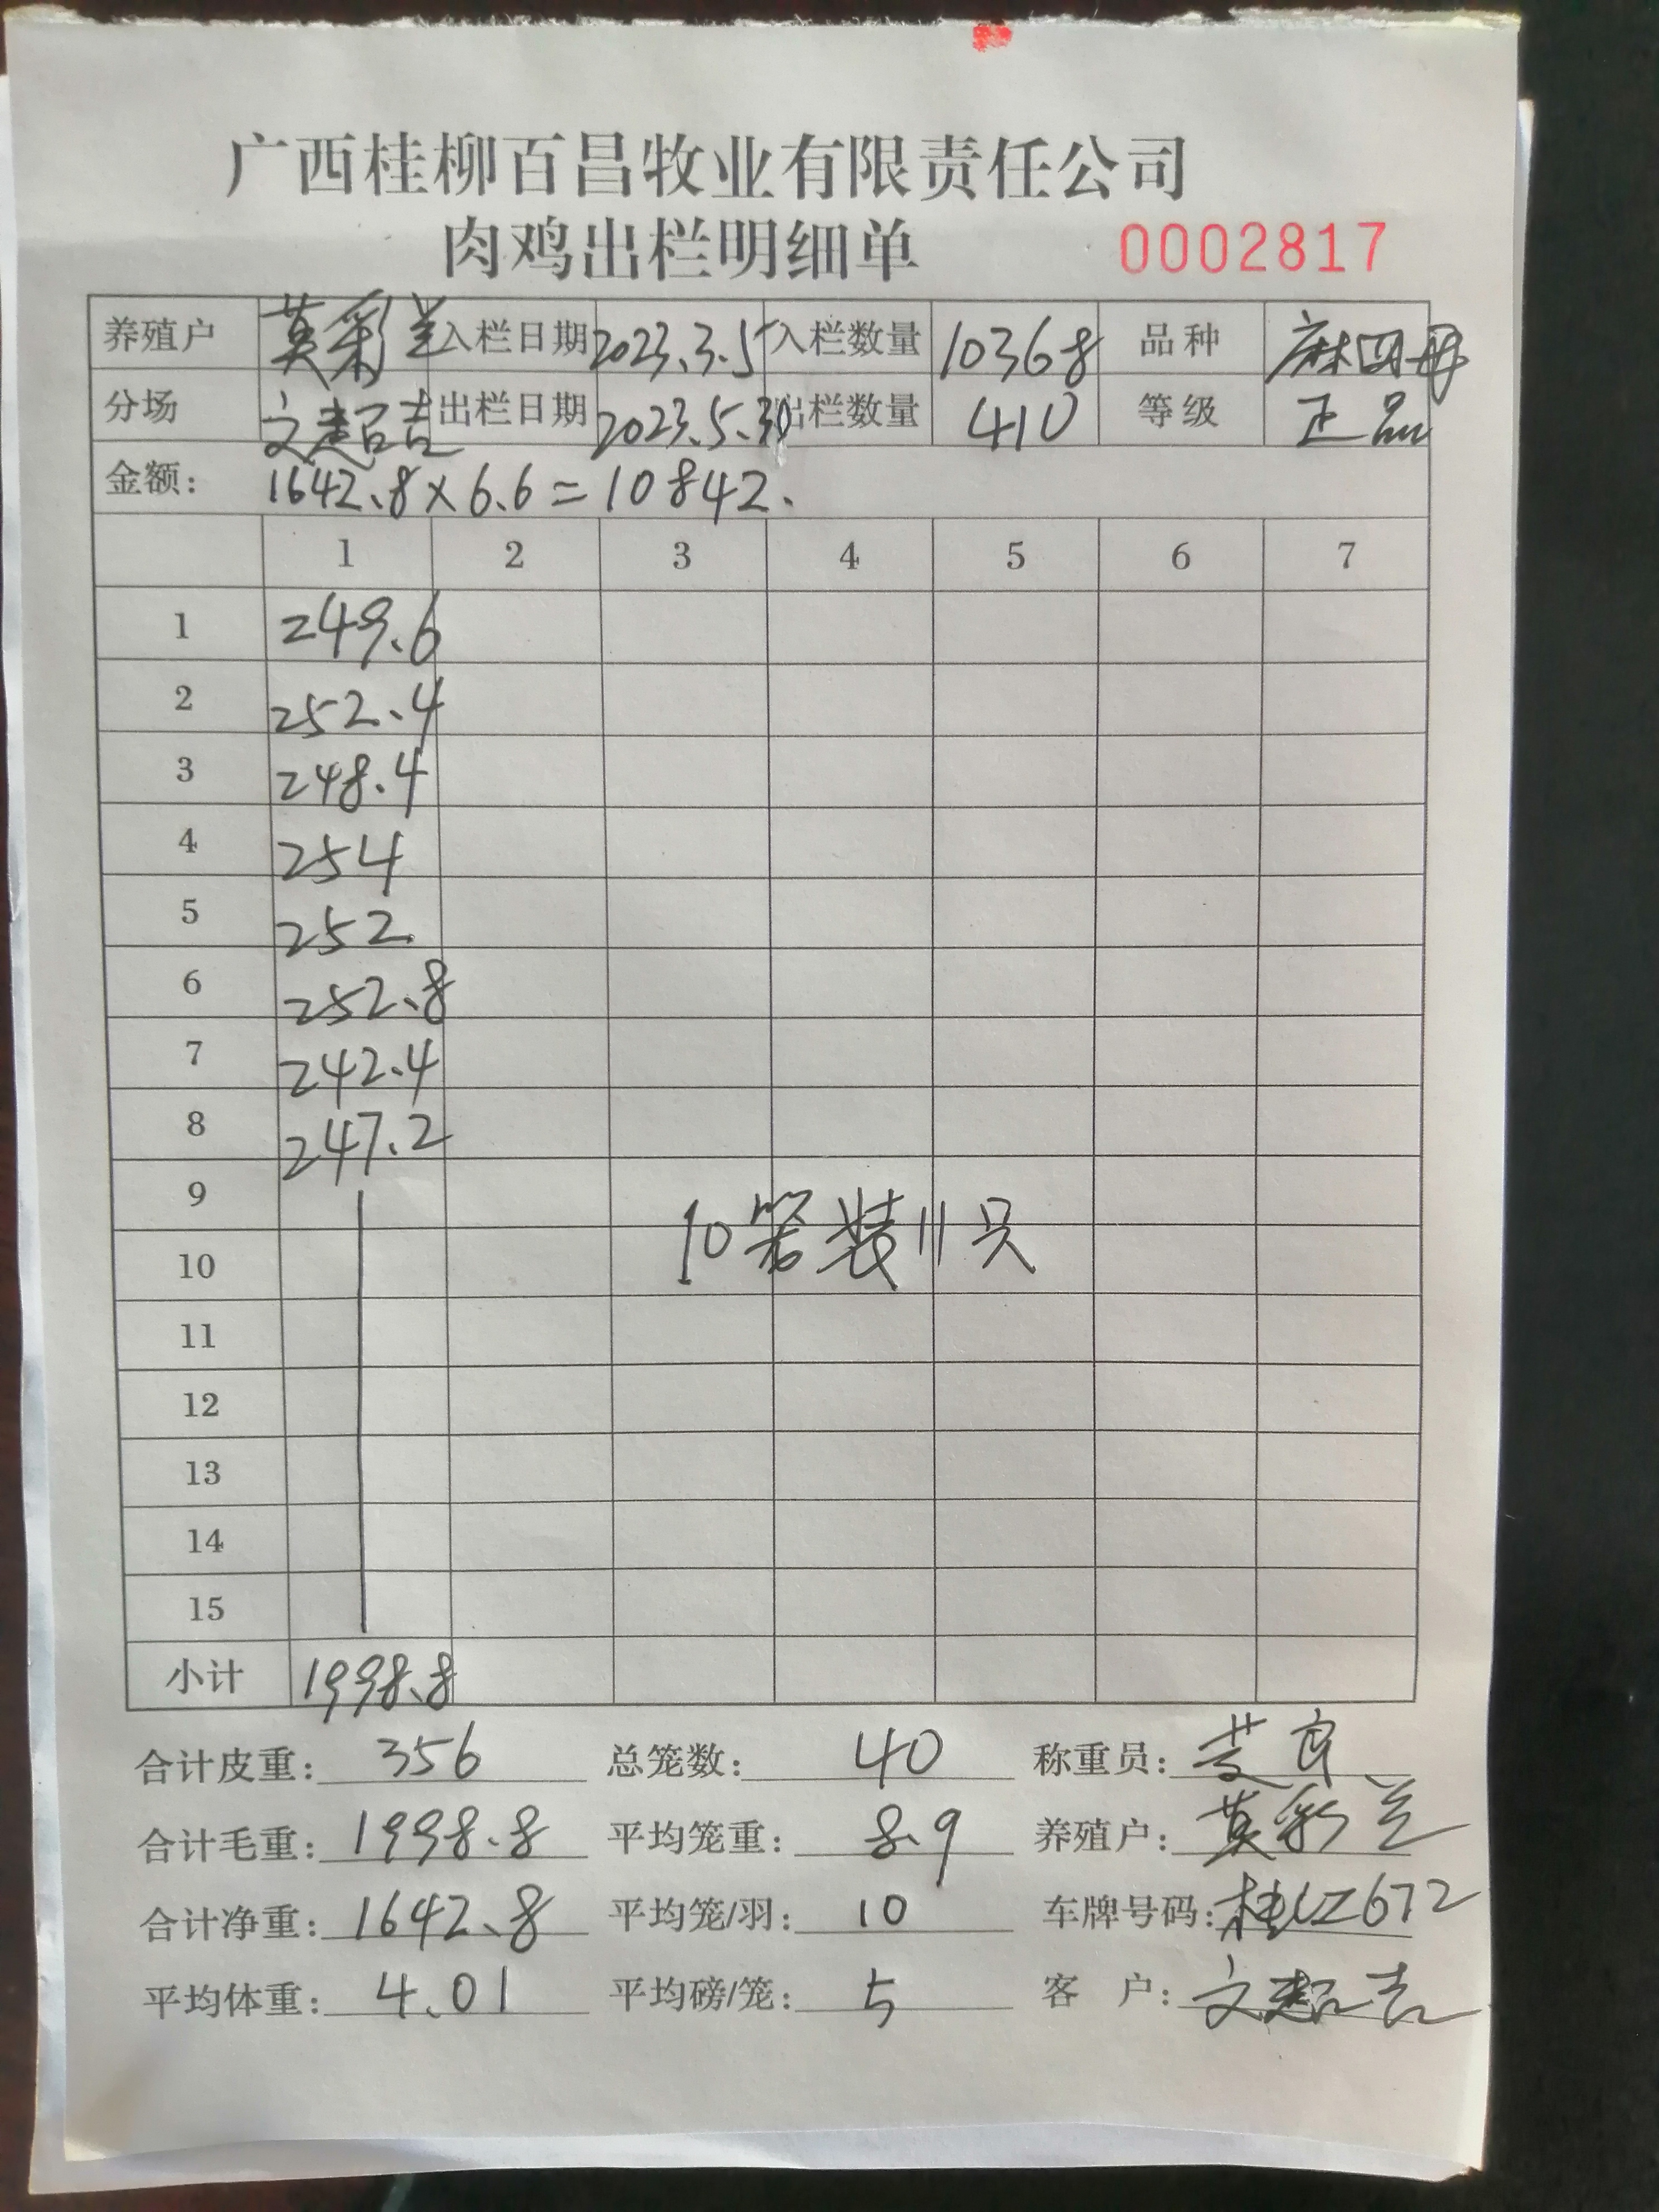 广西桂柳百昌牧业有限责任公司
肉鸡出栏明细单 0002817
养殖户 莫彩兰 入栏日期 2023.3.5 入栏数量 10368 品种 麻四母
分场 文超吉 出栏日期 2023.5.30 出栏数量 410 等级 正品
金额: 1642.8×6.6=10842.
1 2 3 4 5 6 7
1 249.6
2 252.4
3 248.4
4 254
5 252
6 252.8
7 242.4
8 247.2
9
10 10笼装11只
11
12
13
14
15
小计 1998.8
合计皮重: 356 总笼数: 40 称重员:
合计毛重: 1998.8 平均笼重: 8.9 养殖户: 莫彩兰
合计净重: 1642.8 平均笼/羽: 10 车牌号码:
平均体重: 4.01 平均磅/笼: 5 客 户: 文超吉